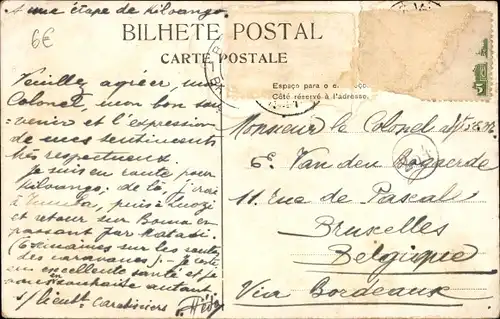 A une étape de Kilovango.
6€
BILHETE POSTAL
CARTE POSTALE
Espaço para o
Côté réservé à l'adresse
Veuillez agréer, mon
Colonel, mon bon sou-
venir et l'expression
de mes sentiments
très respectueux.
Je suis en route pour
Kilovango: de là, j'irai
à puis à
et retour sur Boma en
passant par Matadi.
(6 semaines sur les routes
des caravanes). – Je reste
en excellente santé et je
vous en souhaite autant.
s/lieutt Carabiniers
Monsieur le Colonel
E. Van den Bogaerde
11, Rue de Pascal
Bruxelles
Belgique
Via Bordeaux